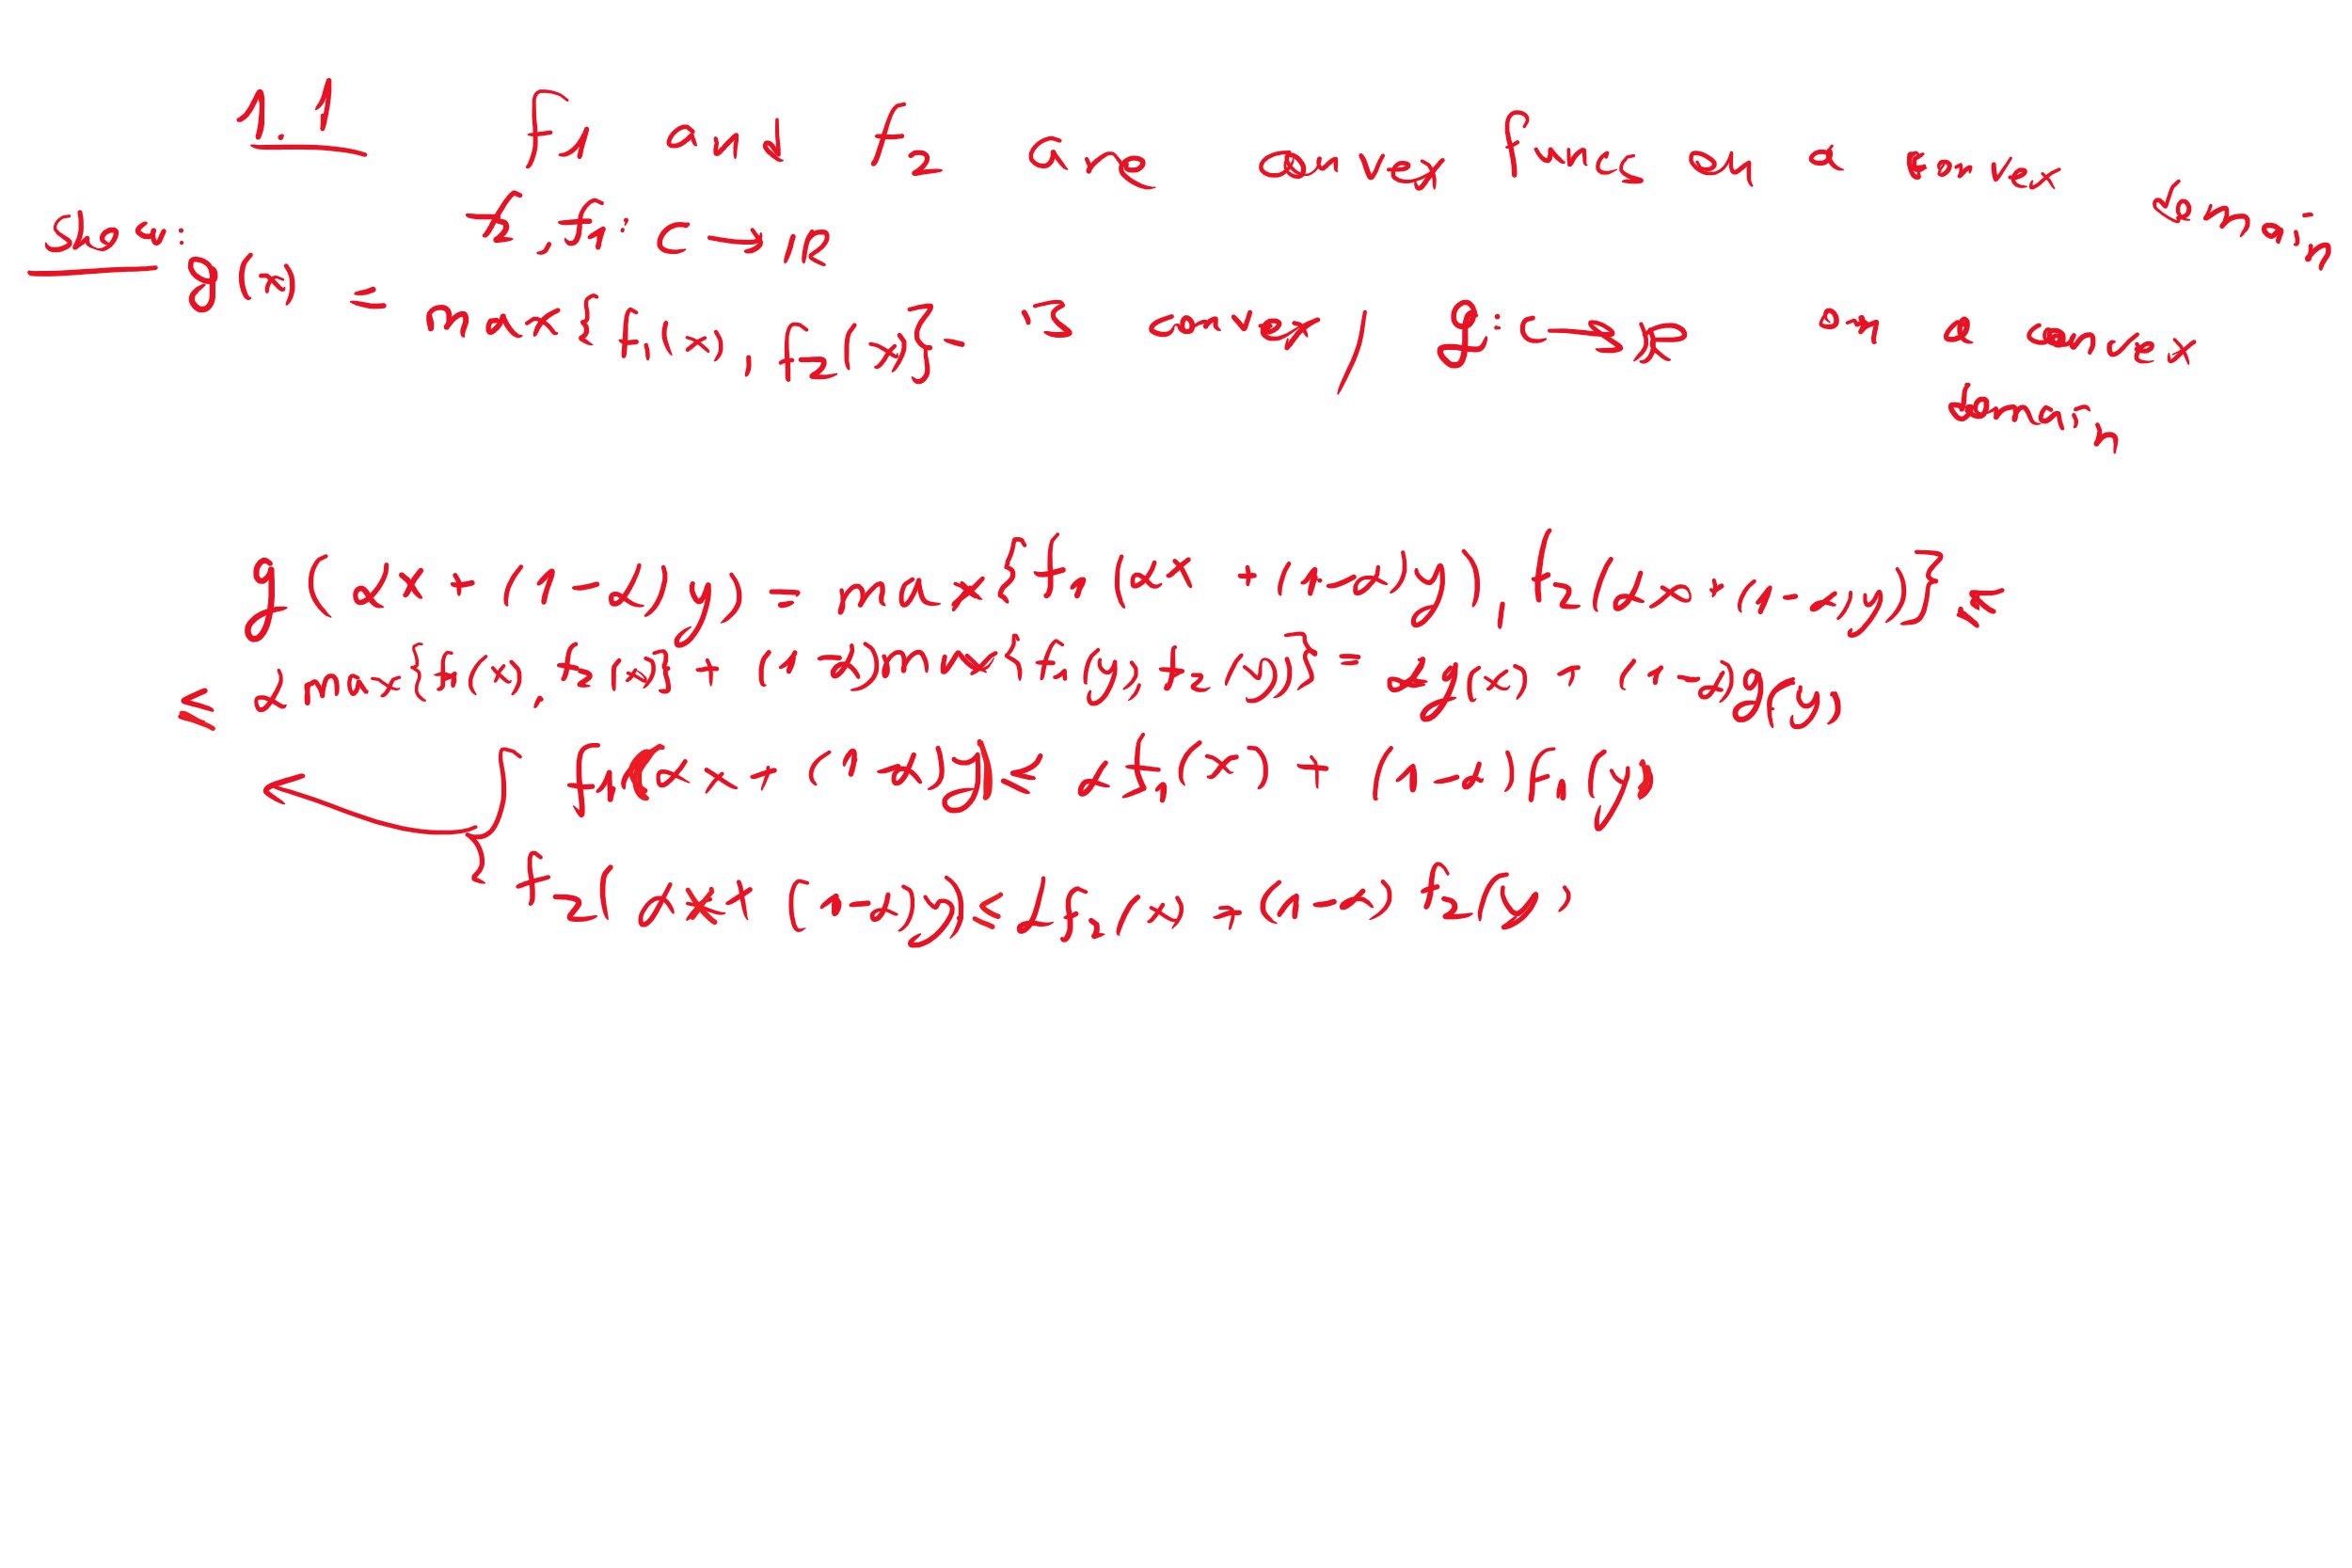 1.1 f1 and f2 are convex funcs on a convex domain
f1, f2: C → R
show:
g(x) = max{f1(x), f2(x)} - is convex / g: C → R on a convex domain
g(αx + (1-α)y) = max{f1(αx + (1-α)y), f2(αx + (1-α)y)} ≤
≤ α max{f1(x), f2(x)} + (1-α)max{f1(y), f2(y)} = αg(x) + (1-α)g(y)
f1(αx + (1-α)y) ≤ αf1(x) + (1-α)f1(y)
f2(αx + (1-α)y) ≤ αf2(x) + (1-α)f2(y)